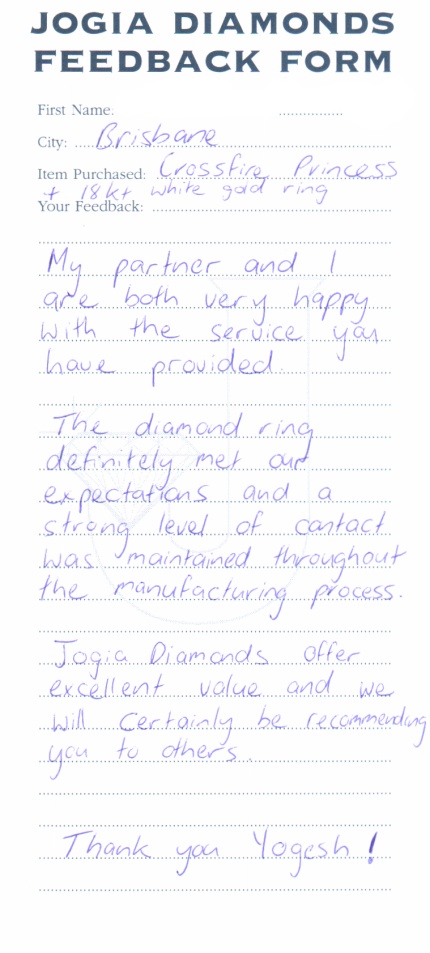 JOGIA DIAMONDS
FEEDBACK FORM
First Name:
City: Brisbane
Item Purchased: Crossfire Princess
+ 18kt white gold ring
Your Feedback:
My partner and I
are both very happy
with the service you
have provided.
The diamond ring
definitely met our
expectations and a
strong level of contact
was maintained throughout
the manufacturing process.
Jogia Diamonds offer
excellent value and we
will certainly be recommending
you to others.
Thank you Yogesh!